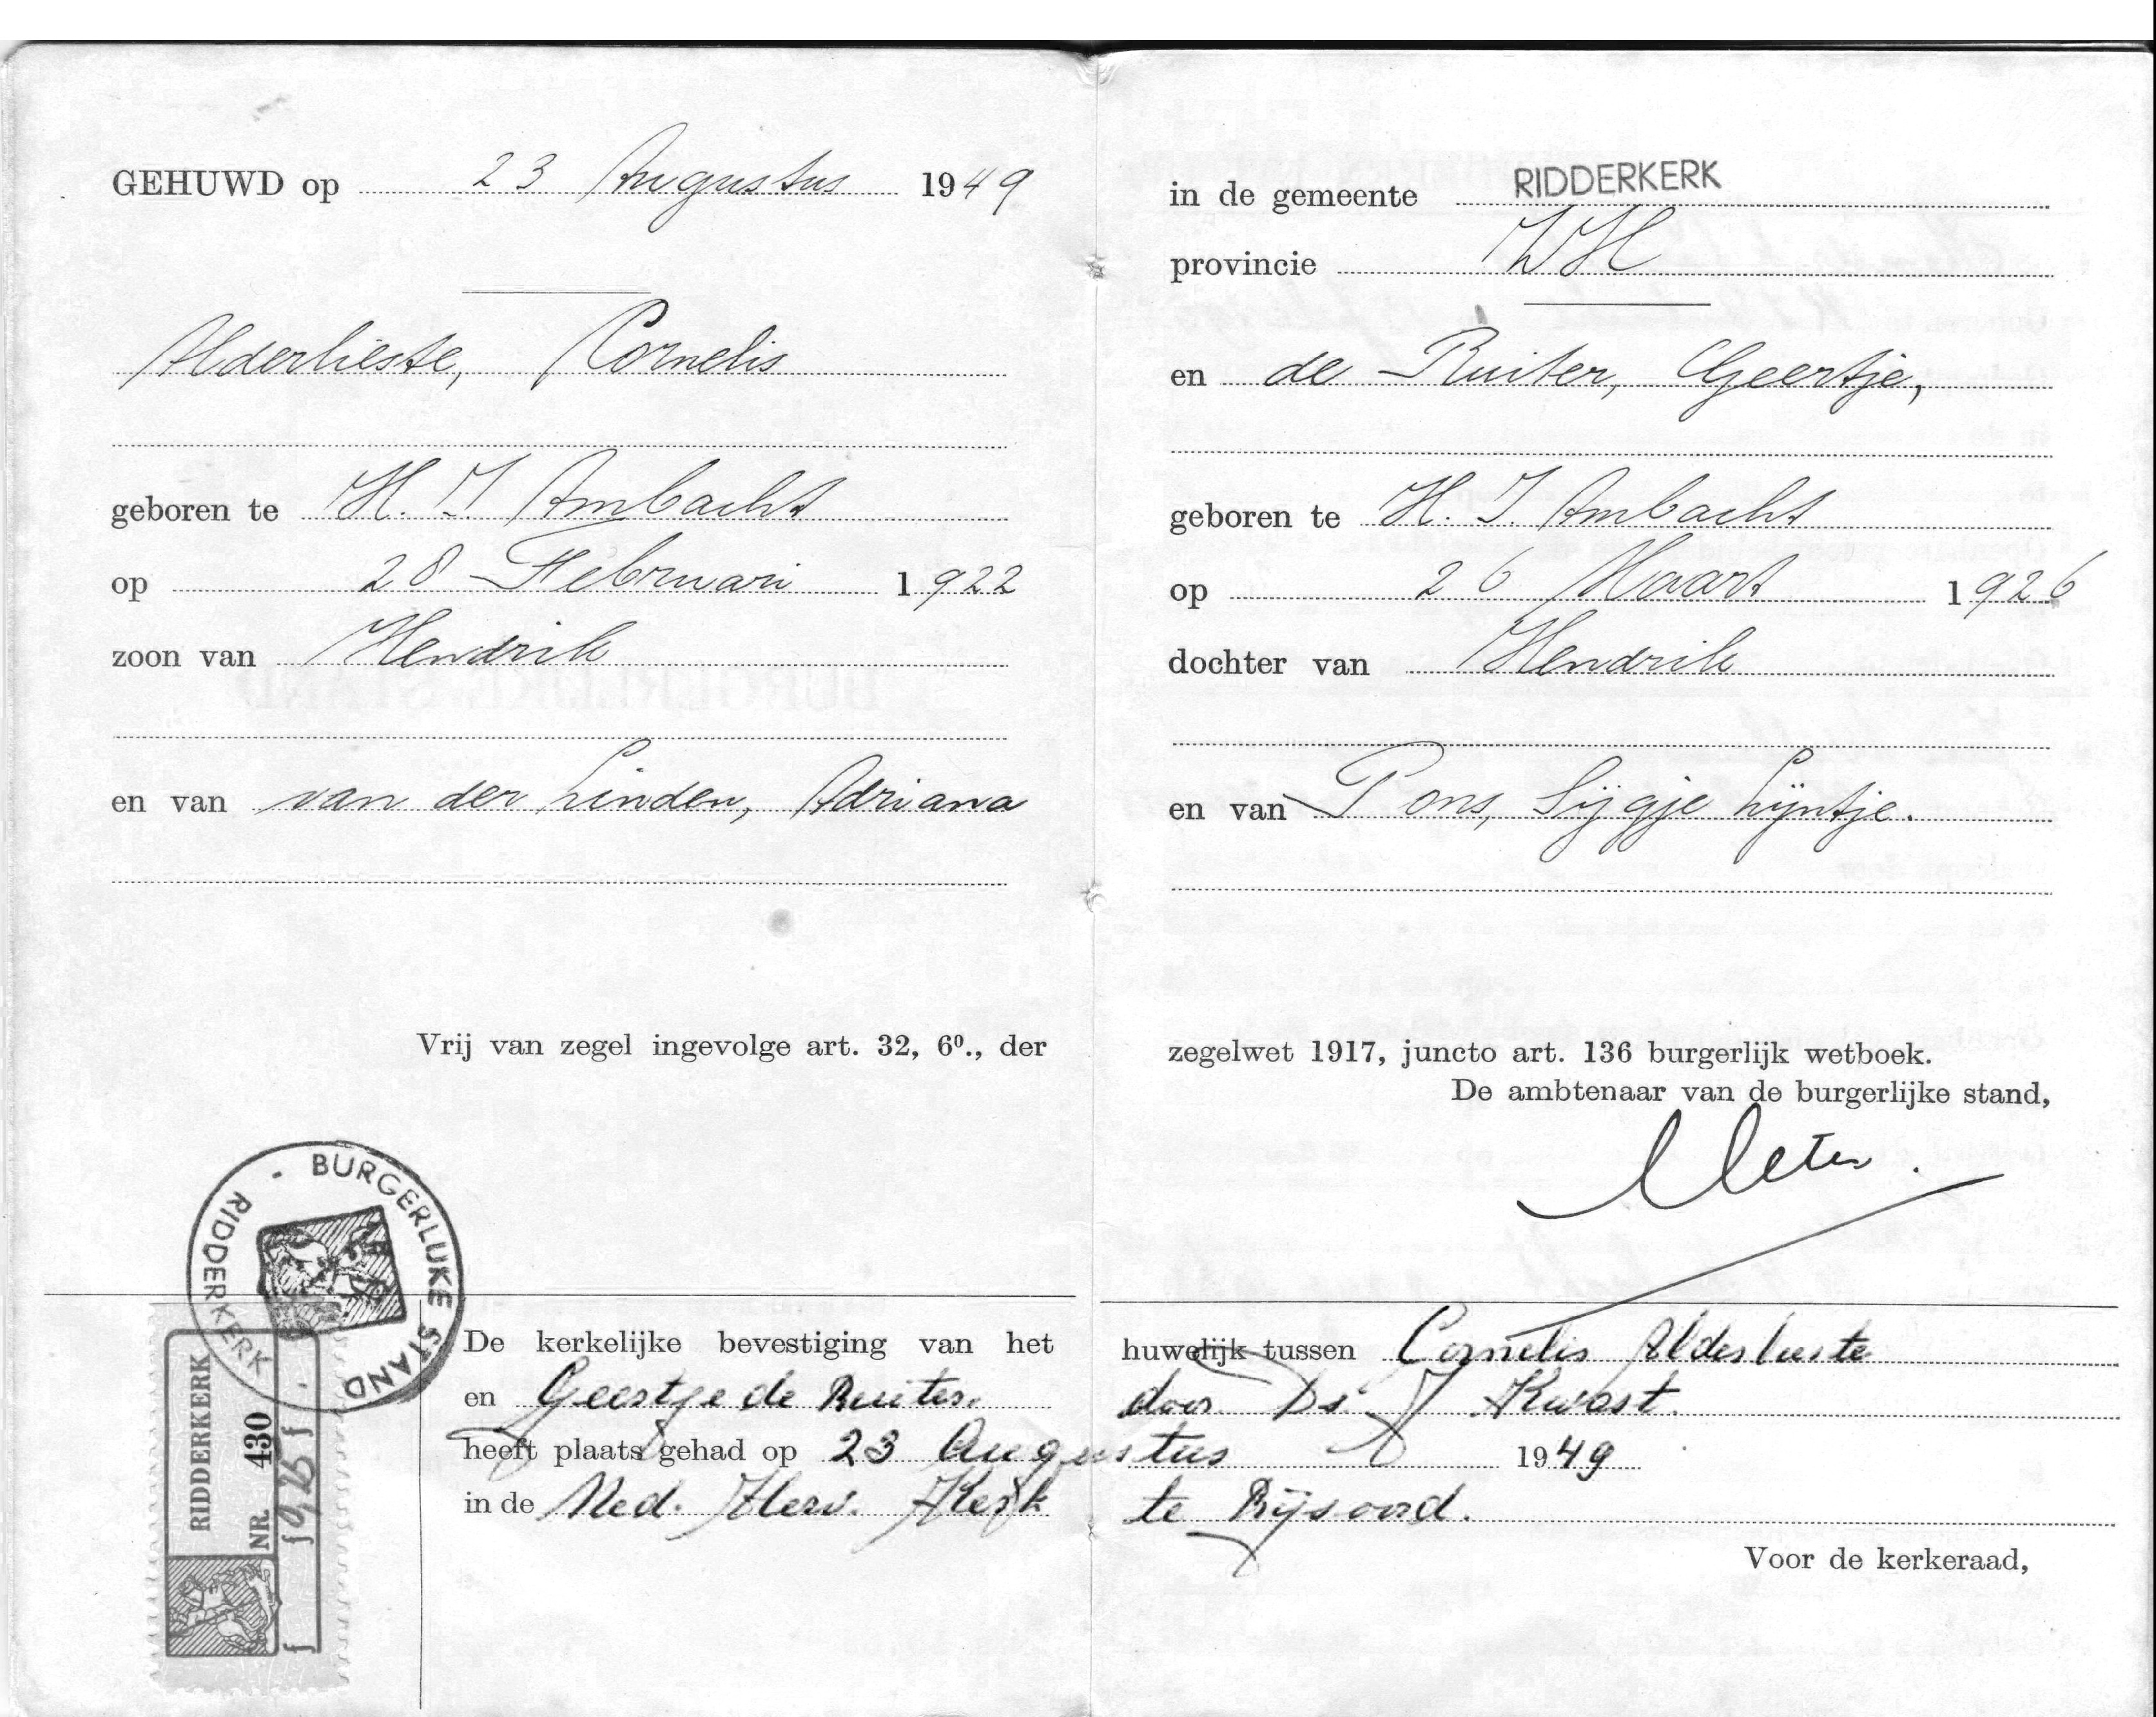 GEHUWD op 23 Augustus 1949
Alderlieste, Cornelis
geboren te H. I. Ambacht
op 28 Februari 1922
zoon van Hendrik
en van van der Linden, Adriana
Vrij van zegel ingevolge art. 32, 6º., der
BURGERLIJKE STAND - RIDDERKERK
RIDDERKERK
NR. 430
f 0,25 f
De kerkelijke bevestiging van het
en Geertje de Ruiter.
heeft plaats gehad op 23 Augus
in de Ned. Herv. Kerk
in de gemeente RIDDERKERK
provincie ZH
en de Ruiter, Geertje,
geboren te H. I. Ambacht
op 26 Maart 1926
dochter van Hendrik
en van Pons, Sijgje Lijntje.
zegelwet 1917, juncto art. 136 burgerlijk wetboek.
De ambtenaar van de burgerlijke stand,
huwelijk tussen Cornelis Alderlieste
door Ds J Kwast.
tus 1949
te Rijsoord.
Voor de kerkeraad,